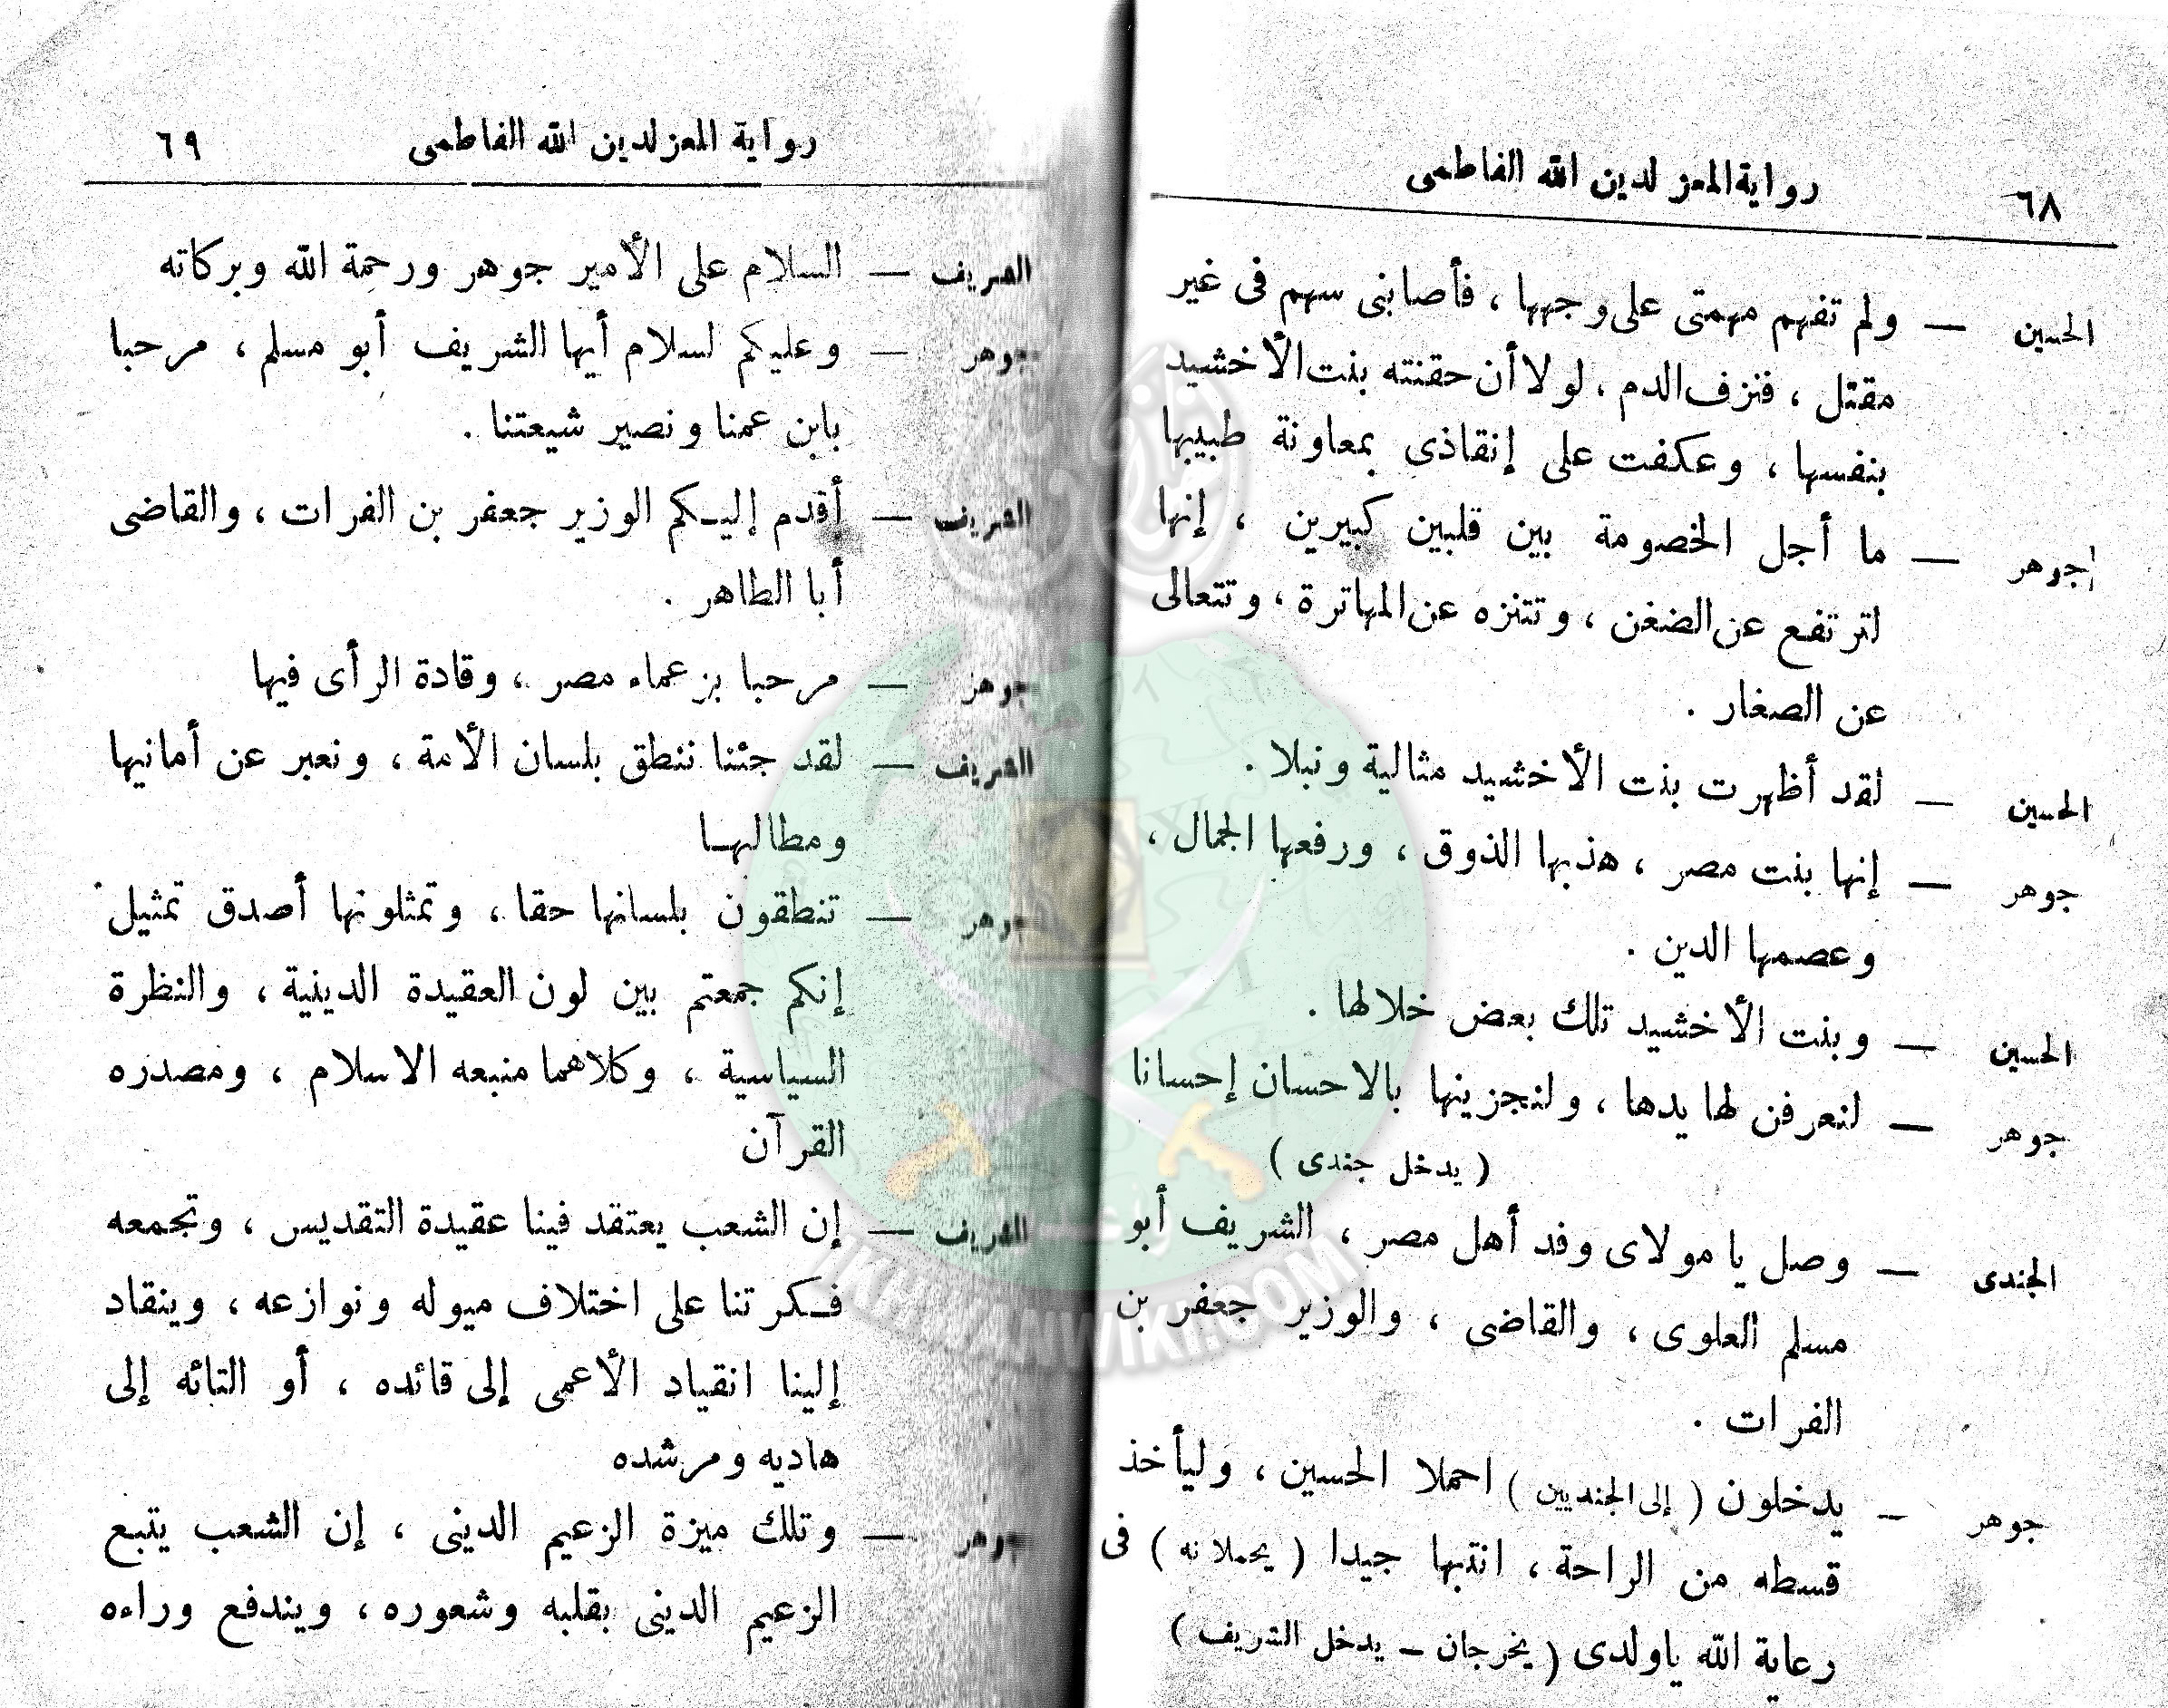 ٦٨ رواية المعز لدين الله الفاطمى
الحسين — ولم تفهم مهمتى على وجهها ، فأصابنى سهم فى غير
مقتل ، فنزف الدم ، لولا أن حقنته بنت الأخشيد
بنفسها ، وعكفت على إنقاذى بمعاونة طبيبها
جوهر — ما أجل الخصومة بين قلبين كبيرين ، إنها
لترتفع عن الضغن ، وتتنزه عن المهاترة ، وتتعالى
عن الصغار .
الحسين — لقد أظهرت بنت الأخشيد مثالية ونبلا .
جوهر — إنها بنت مصر ، هذبها الذوق ، ورفعها الجمال ،
وعصمها الدين .
الحسين — وبنت الأخشيد تلك بعض خلالها .
جوهر — لنعرفن لها يدها ، ولنجزينها بالاحسان إحسانا
( يدخل جندى )
الجندى — وصل يا مولاى وفد أهل مصر ، الشريف أبو
مسلم العلوى ، والقاضى ، والوزير جعفر بن
الفرات .
جوهر — يدخلون ( إلى الجنديين ) احملا الحسين ، وليأخذ
قسطه من الراحة ، انتبها جيدا ( يحملانه ) فى
رعاية الله ياولدى ( يخرجان – يدخل الشريف )
رواية المعز لدين الله الفاطمى ٦٩
الشريف — السلام على الأمير جوهر ورحمة الله وبركاته
جوهر — وعليكم لسلام أيها الشريف أبو مسلم ، مرحبا
بابن عمنا ونصير شيعتنا .
الشريف — أقدم إليكم الوزير جعفر بن الفرات ، والقاضى
أبا الطاهر .
جوهر — مرحبا بزعماء مصر ، وقادة الرأى فيها
الشريف — لقد جئنا ننطق بلسان الأمة ، ونعبر عن أمانيها
ومطالبها
جوهر — تنطقون بلسانها حقا ، وتمثلونها أصدق تمثيل
إنكم جمعتم بين لون العقيدة الدينية ، والنظرة
السياسية ، وكلاهما منبعه الاسلام ، ومصدره
القرآن
الشريف — إن الشعب يعتقد فينا عقيدة التقديس ، وتجمعه
فكرتنا على اختلاف ميوله ونوازعه ، وينقاد
إلينا انقياد الأعمى إلى قائده ، أو التائه إلى
هاديه ومرشده
جوهر — وتلك ميزة الزعيم الدينى ، إن الشعب يتبع
الزعيم الدينى بقلبه وشعوره ، ويندفع وراءه